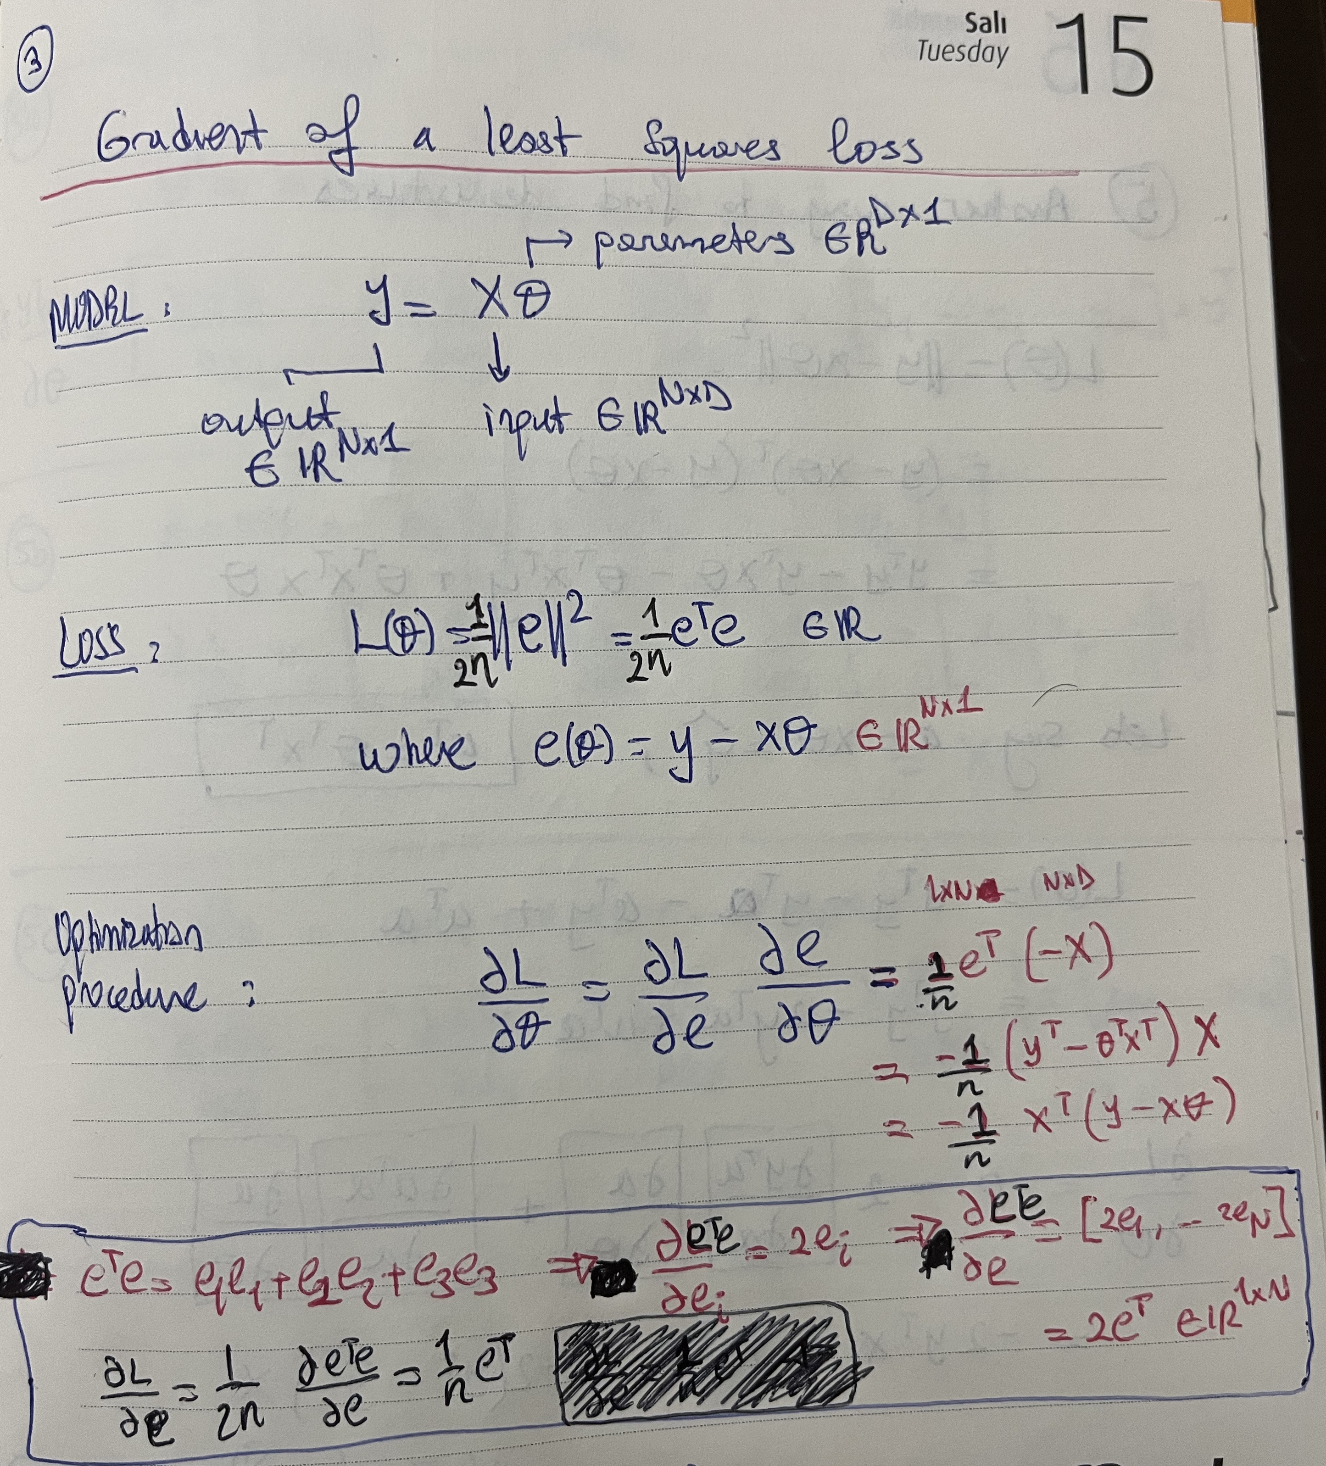 3
Salı
Tuesday 15
Gradient of a least squares loss
→ parameters ∈ R^{D×1}
MODEL : y = Xθ
output ∈ R^{N×1}
input ∈ R^{N×D}
Loss : L(θ) = 1/2n ||e||^2 = 1/2n e^T e ∈ R
where e(θ) = y − Xθ ∈ R^{N×1}
1×N N×D
Optimization procedure : ∂L/∂θ = ∂L/∂e ∂e/∂θ = 1/n e^T (−X)
= −1/n (y^T − θ^T X^T) X
= −1/n X^T (y − Xθ)
e^T e = e1e1 + e2e2 + e3e3 ⇒ ∂e^T e/∂ei = 2ei ⇒ ∂e^T e/∂e = [2e1, -- 2eN]
= 2e^T ∈ R^{1×N}
∂L/∂e = 1/2n ∂e^T e/∂e = 1/n e^T